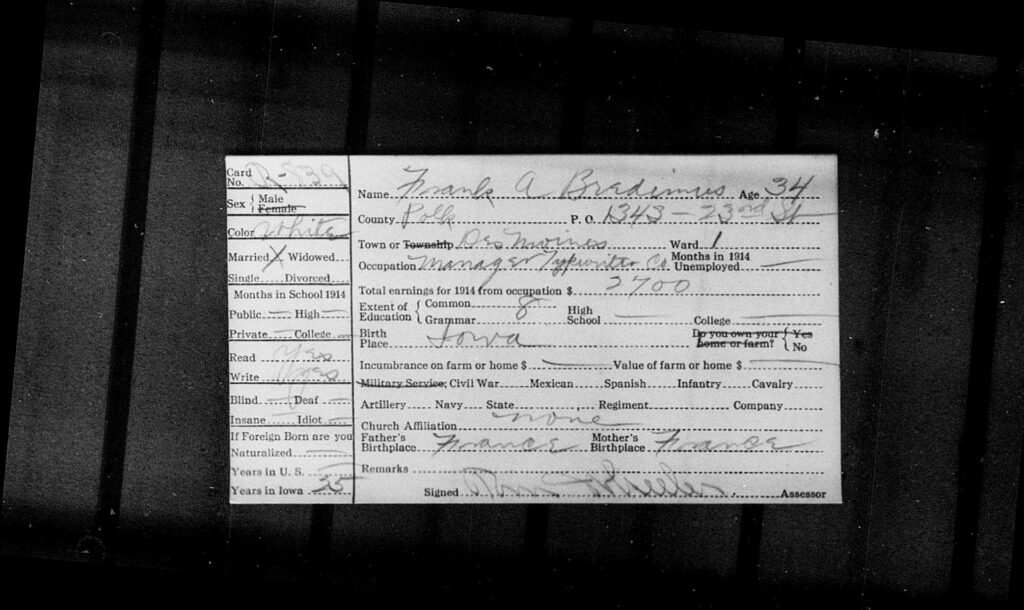 Card No. R-539
Sex { Male Female
Color White
Married X Widowed
Single Divorced
Months in School 1914
Public — High —
Private — College —
Read Yes
Write Yes
Blind — Deaf —
Insane — Idiot —
If Foreign Born are you
Naturalized —
Years in U. S. —
Years in Iowa
Name Frank A Bredimus Age 34
County Polk P. O. 1343 – 23rd St
Town or Township Des Moines Ward 1
Occupation Manager Typewriter Co Months in 1914 Unemployed —
Total earnings for 1914 from occupation $ 2700
Extent of Education { Common 8 Grammar High School — College —
Birth Place Iowa Do you own your home or farm? { Yes No
Incumbrance on farm or home $ — Value of farm or home $ —
Military Service: Civil War Mexican Spanish Infantry Cavalry
Artillery Navy State Regiment Company
Church Affiliation none
Father's Birthplace France Mother's Birthplace France
Remarks
Signed Assessor